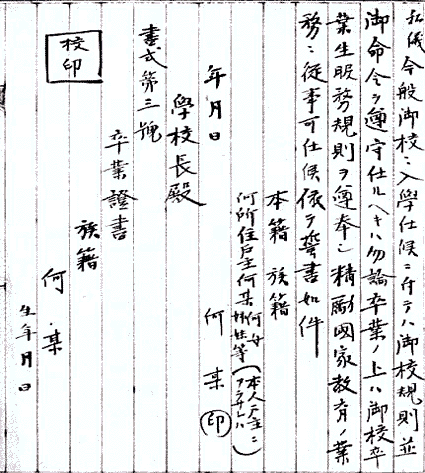 私儀今般御校ニ入學仕候ニ付テハ御校規則並
御命令ヲ遵守仕ルヘキハ勿論卒業ノ上ハ御校卒
業生服務規則ヲ遵奉シ精勵國家教育ノ業
務ニ從事可仕候依テ誓書如件
本籍 族籍
何所住戸主何某何女
姉妹等(本人戸主ニ
アラサレハ)
何某 印
年月日
學校長殿
書式第三號
卒業證書
校印
族籍
何某
生年月日